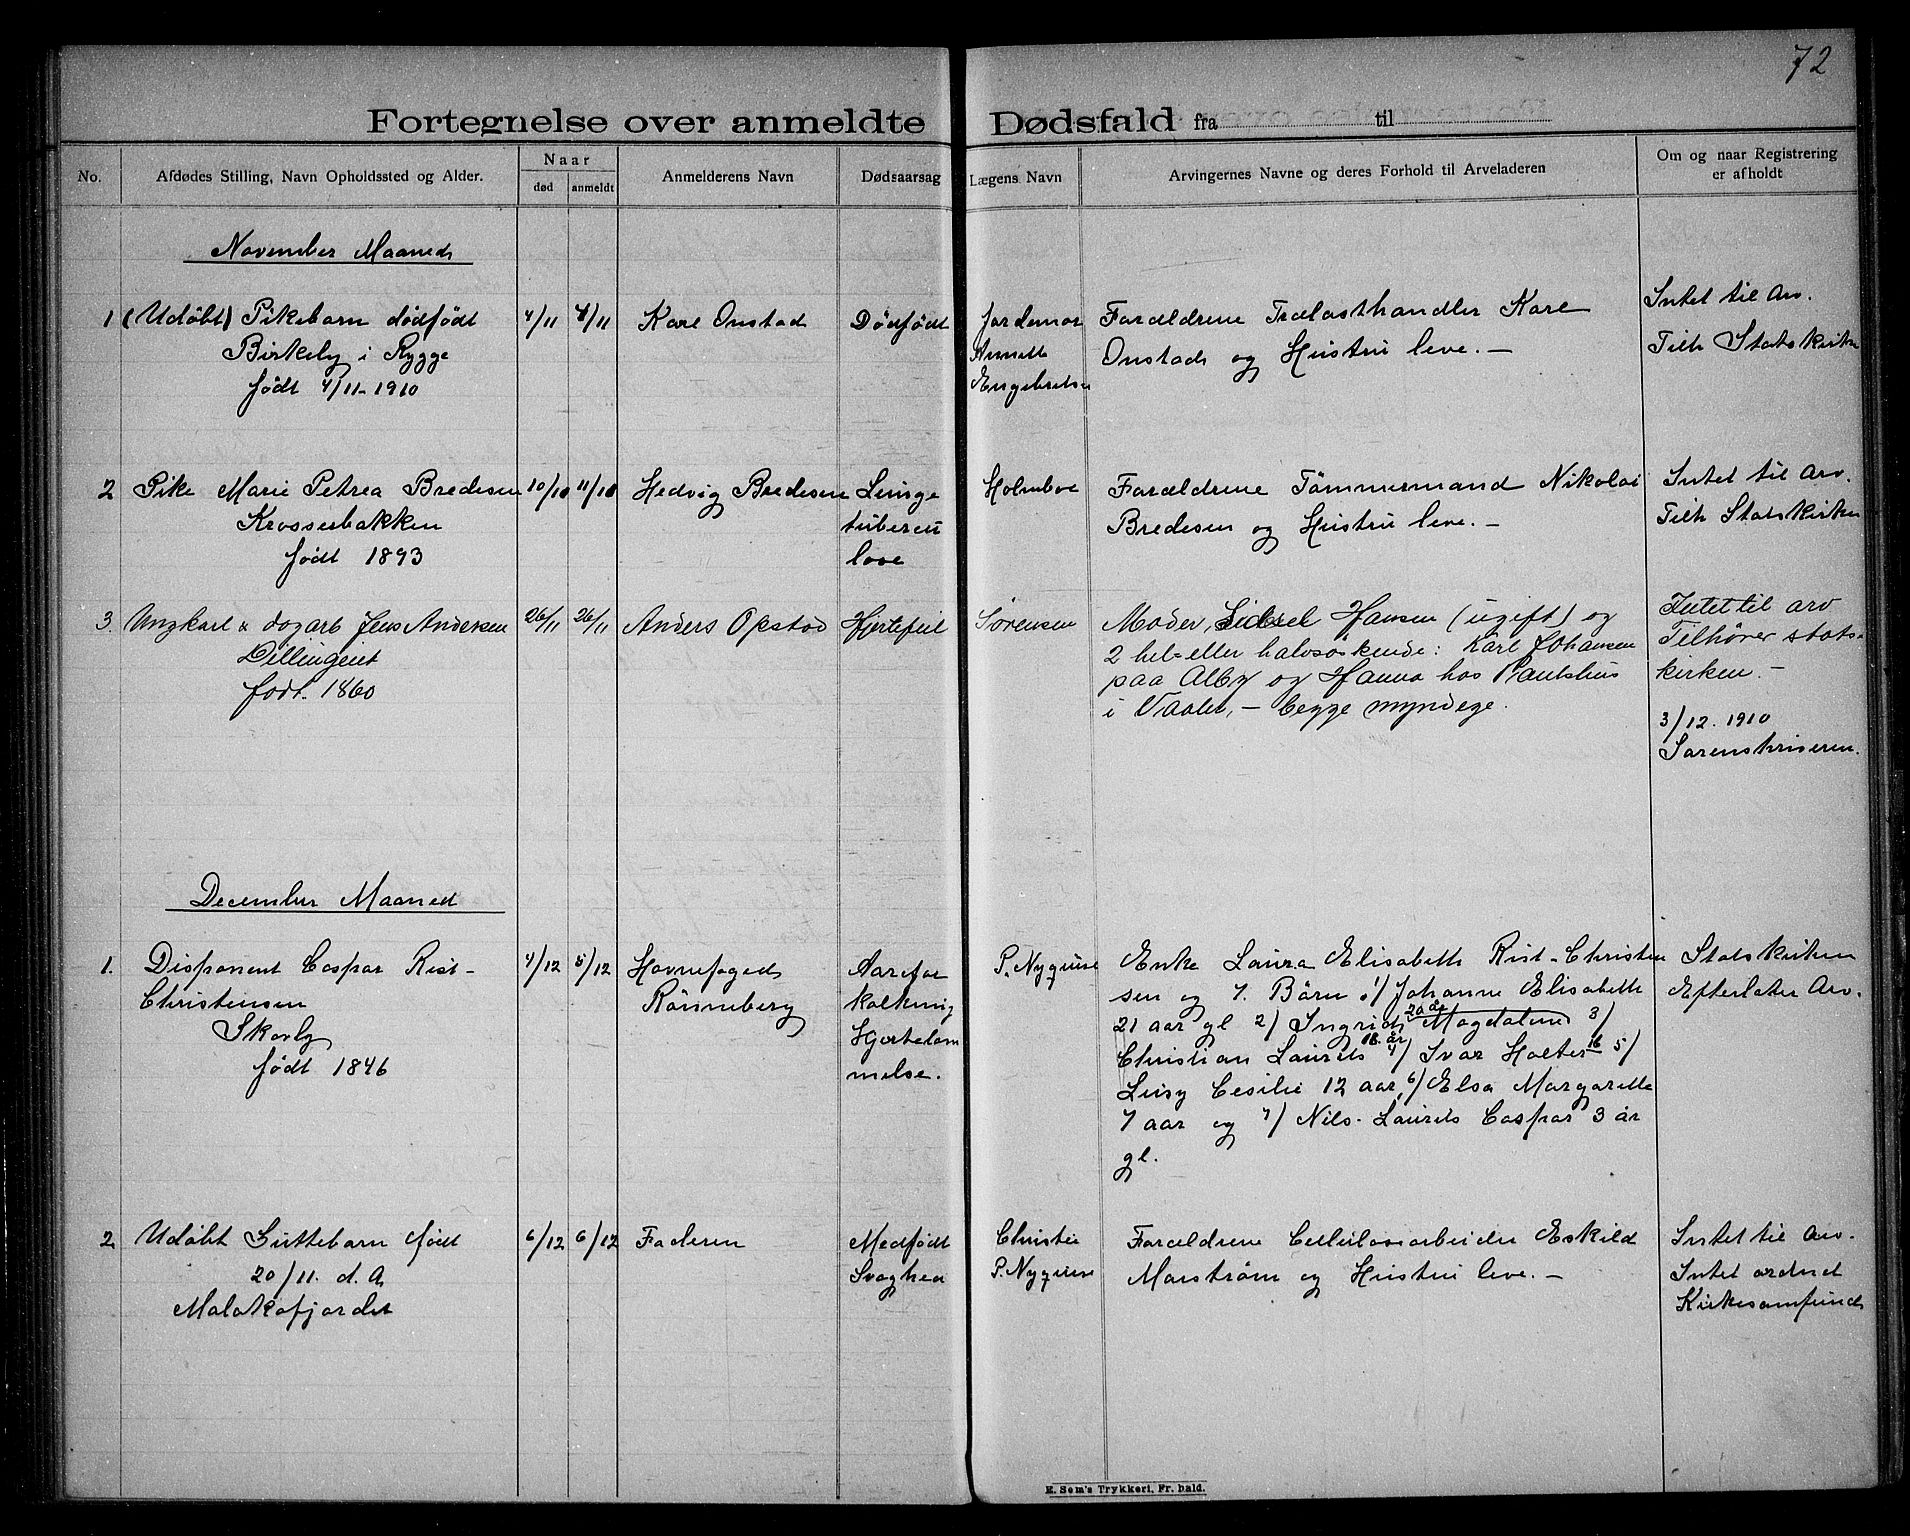 72
Fortegnelse over anmeldte Dødsfald fra til
No.
Afdødes Stilling, Navn Opholdssted og Alder.
Naar
død
anmeldt
Anmelderens Navn
Dødsaarsag
Lægens Navn
Arvingernes Navne og deres Forhold til Arveladeren
Om og naar Registrering
er afholdt
November Maaned
1 (Udøbt) Pikebarn dødfødt
Birkely i Rygge
født 4/11-1910
4/11 4/11
Karl Onstad
Dødfødt
Jordemor
Annette
Engebretsen
Forældrene Trælasthandler Karl
Onstad og Hustru leve. —
Intet til Arv.
Tilh Statskirken
2 Pike Marie Petrea Bredesen
Krosserbakken
født 1893
10/10 11/10
Hedvig Bredesen
Lunge
tubercu
lose
Holmboe
Forældrene Tømmermand Nikolai
Bredesen og Hustru leve. —
Intet til Arv.
Tilh Statskirken
3. Ungkarl & dagarb Jens Andersen
Dillingeiet
født. 1860
26/11 26/11
Anders Opstad
Hjertefeil
Sørensen
Moder, Sidsel Hansen (ugift) og
2 hel- eller halvsøskende: Karl Johansen
paa Alby og Hanna hos
i Vaaler, — begge myndige.
Intet til arv
Tilhører stats-
kirken. —
3/12. 1910
Sorenskriveren.
December Maaned
1. Disponent Caspar Rist-
Christensen
Skarby
født 1846
4/12 5/12
Havnefoged
Rønneberg
Aarefor
kalkning
Hjertelam
melse.
P. Nyquist
Enke Laura Elisabeth Rist-Christen
sen og 7. Børn 1/ Johanne Elisabeth
21 aar gl 2/ Ingrid Magdalene 20 år 3/
Christian Laurits 18 år 4/ Ivar Holter 16 5/
Lusy Cesilie 12 aar, 6/ Elsa Margarethe
7 aar og 7/ Nils-Laurits Caspar 3 år
gl.
Statskirken
Efterlater Arv.
2 Udøbt Guttebarn født
20/11. d. A
Malakofjordet
6/12 6/12
Faderen
Medfødt
Svaghed
Christie
P. Nyquist
Forældrene Celluloscarbeider Eskild
Marstrøm og Hustru leve. —
Intet til Arv.
Intet ordnet
Kirkesamfund
E. Sem's Trykkeri, Fr. hald.